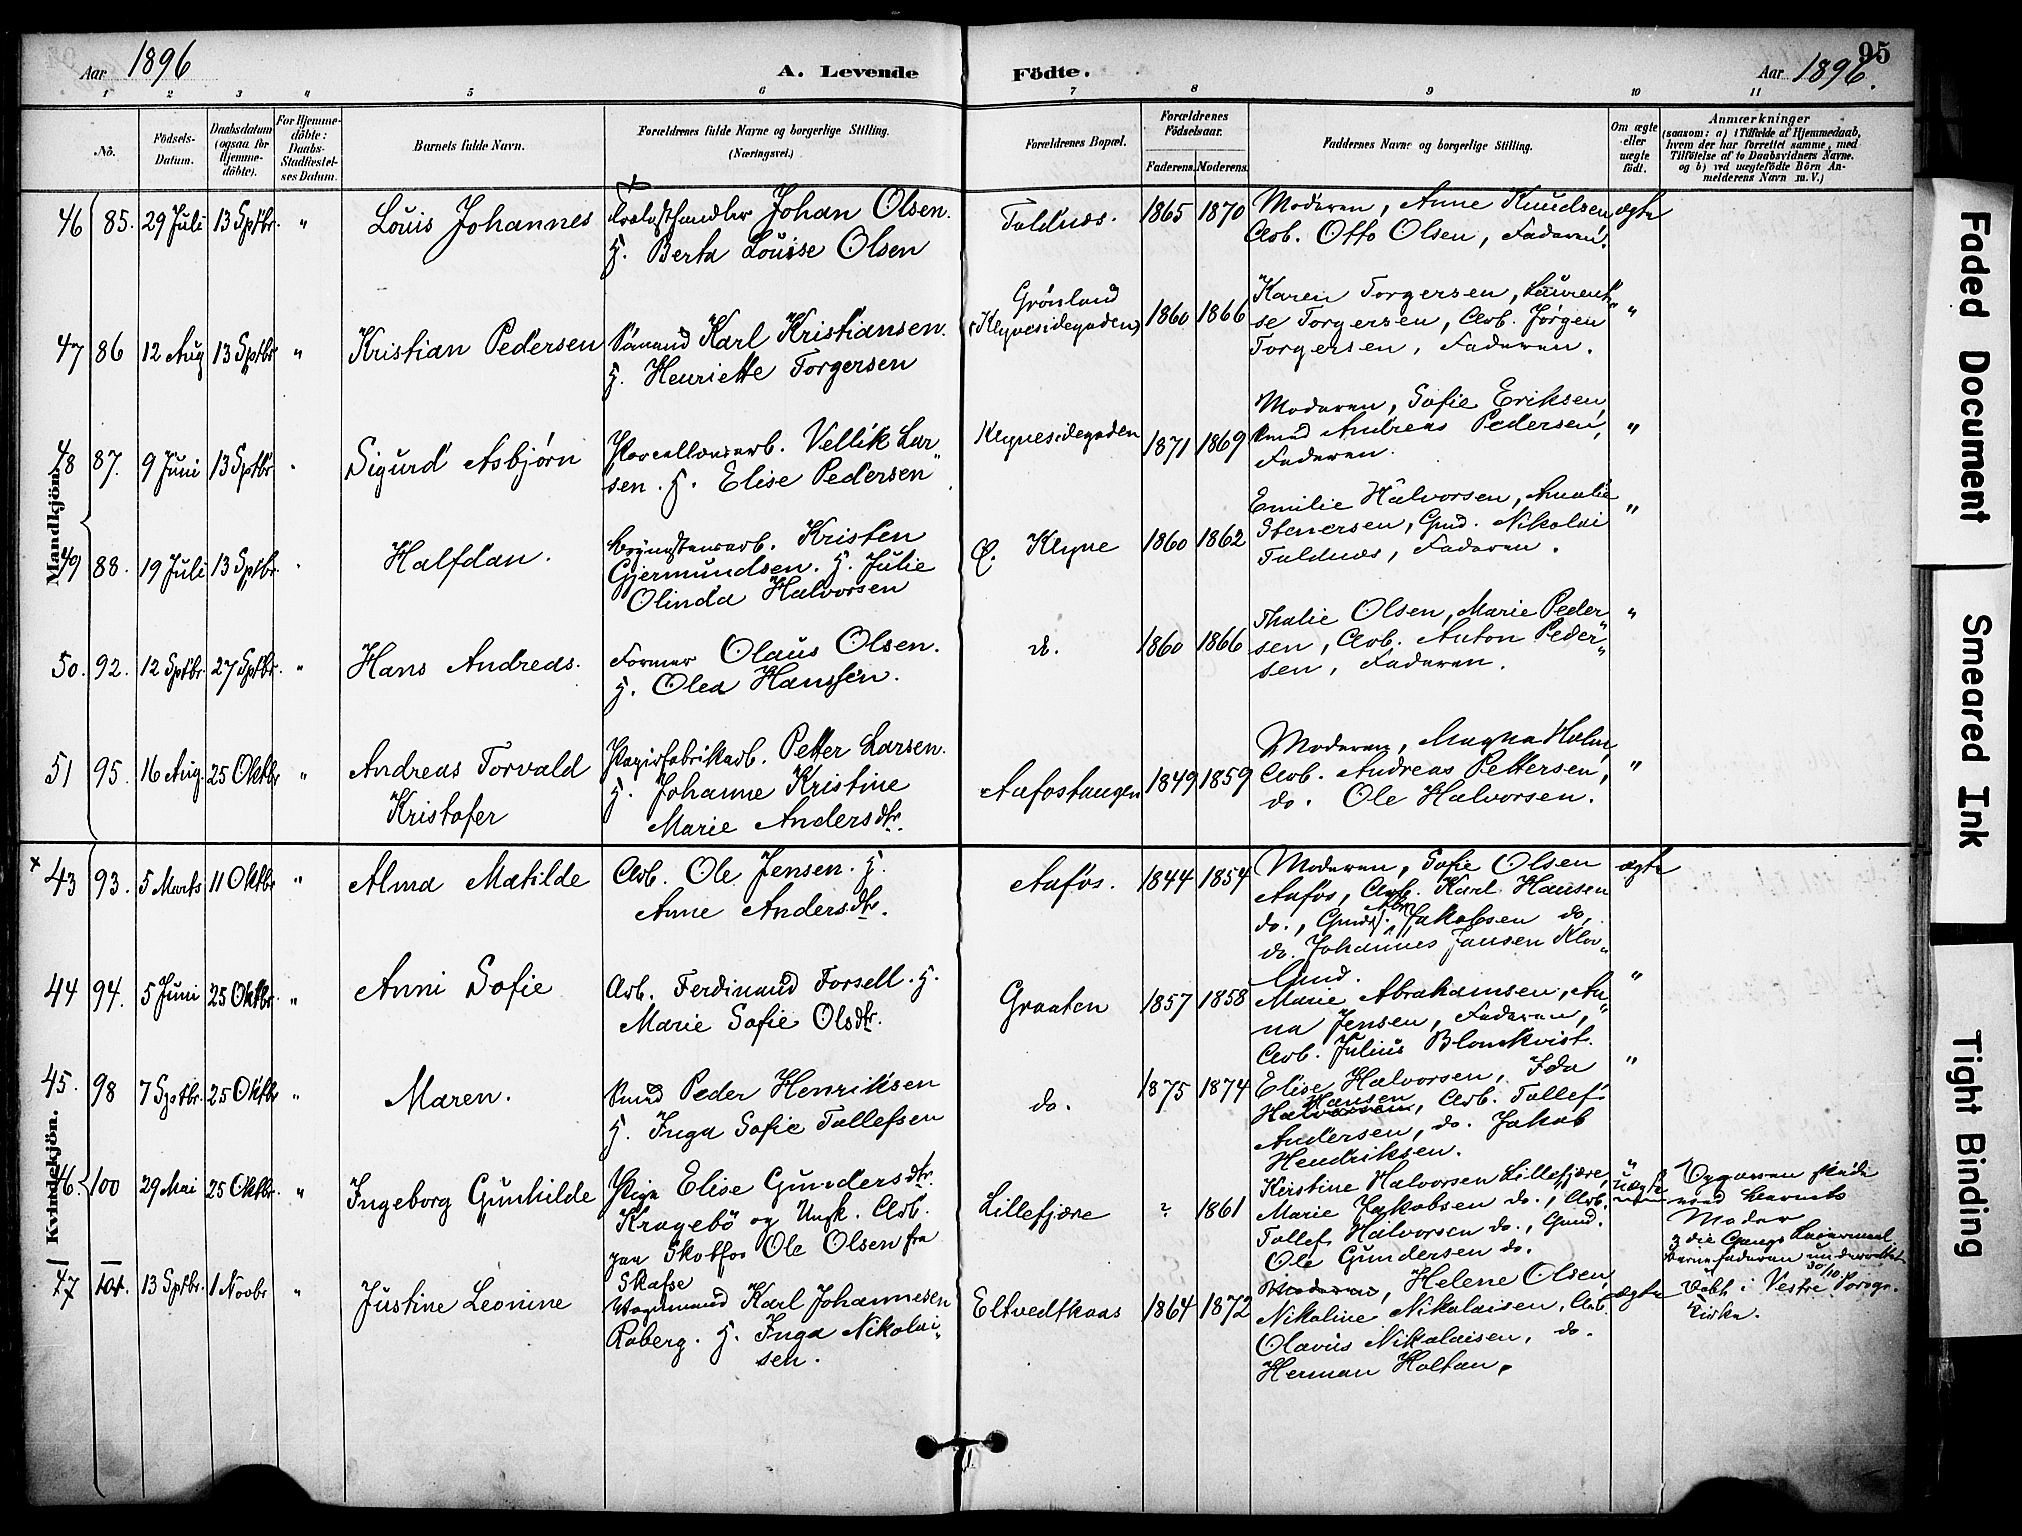 Aar 1896
A. Levende
Födte.
Aar 1896.
95
1 2 3 4 5 6 7 8 9 10 11
No.
Födsels-Datum.
Daabsdatum (ogsaa for Hjemme-döbte).
For Hjemme-döbte: Daabs-Stadfæstel-ses Datum.
Barnets fulde Navn.
Forældrenes fulde Navne og borgerlige Stilling. (Næringsvei.)
Forældrenes Bopæl.
Forældrenes Födselsaar.
Faderens. Moderens.
Faddernes Navne og borgerlige Stilling.
Om ægte eller uægte födt.
Anmærkninger
(saasom: a) i Tilfælde af Hjemmedaab,
hvem der har forrettet samme, med
Tilföielse af to Daabsvidners Navne.
og b) ved uægtefödte Börn An-
melderens Navn m. V.)
Mandkjön.
46 85. 29 Juli 13 Sptbr. „ Louis Johannes
Johan Olsen.
H. Berta Louise Olsen
Foldnæs. 1865 1870
Moderen, Anne Knudsen,
Arb. Otto Olsen, Faderen.
ægte
47 86 12 Aug 13 Sptbr „ Kristian Pedersen
Sömand Karl Kristiansen.
H. Henriette Torgersen
Grönland
(Klyvesidegaden) 1860 1866
Karen Torgersen, Laurent-
se Torgersen, Arb. Jørgen
Torgersen, Faderen.
„
48 87. 9 Juni 13 Sptbr „ Sigurd Asbjørn
Porcellænsarb. Vellik Lar-
sen. H. Elise Pedersen
Klyvesidegaden 1871 1869
Moderen, Sofie Eriksen,
Smd Andreas Pedersen,
Faderen.
„
49 88. 19 Juli 13 Sptbr. „ Halfdan.
Kristen
Gjermundsen. H. Julie
Olinda Halvorsen
Ø. Klyve 1860 1862
Emilie Halvorsen, Amalie
Stenersen, Gmd. Nikolai
Foldnæs, Faderen.
„
50. 92. 12 Sptbr. 27 Sptbr. „ Hans Andreas.
Former Olaus Olsen.
H. Olea Hanssen.
do. 1860 1866
Thalie Olsen, Marie Peder-
sen, Arb. Anton Peder-
sen, Faderen.
„
51 95. 16 Aug. 25 Oktbr „ Andreas Torvald
Kristofer
Papirfabrikarb. Petter Larsen.
H. Johanne Kristine
Marie Andersdtr.
Aafostangen 1849 1859
Moderen, Magna Holm,
Arb. Andreas Pettersen,
do. Ole Halvorsen.
„
Kvindekjön.
x 43 93. 5 Marts 11 Oktbr „ Alma Matilde
Arb. Ole Jensen. H.
Anne Andersdtr.
Aafos. 1844 1854
Moderen, Sofie Olsen
Aafos, Arb. Karl Hansen
do., Gmds. Jakobsen do,
do. Johannes Jansen Klov-
lund.
ægte
44 94. 5 Juni 25 Oktbr. „ Anni Sofie
Arb. Ferdinand Forsell. H.
Marie Sofie Olsdtr.
Graaten 1857 1858
Marie Abrahamsen, An-
na Jensen, Faderen,
Arb. Julius Blomkvist.
„
45. 98 7 Sptbr. 25 Oktbr „ Maren.
Smd Peder Henriksen
H. Inga Sofie Tollefsen
do. 1875 1874
Elise Halvorsen, Ida
Hansen
Halvorsen, Arb. Tollef
Andersen, do. Jakob
Hendriksen.
„
46. 100 29 Mai 25 Oktbr. „ Ingeborg Gunhilde
Pige Elise Gundersdtr.
Kragebö og Ungk. Arb.
paa Skotfos Ole Olsen fra
Skafse
Lillefjære ? 1861
Kirstine Halvorsen Lillefjære,
Marie Jakobsen do., Arb.
Tollef Halvorsen do., Gmd.
Ole Gundersen do.
uægte
Opgaven skede
med Barnets
Moder
3die Gangs Leiermaal.
Barnefaderen underrettet
30/10
47 101. 13 Sptbr. 1 Novbr „ Justine Leonine
Karl Johannesen
Roberg. H. Inga Nikolai-
sen.
Eltvedtkaas 1864 1872
Moderen, Helene Olsen,
Nikoline Nikolaisen, Arb.
Olavus Nikolaisen, do.
Herman Holtan.
ægte
Döbt i Vestre Porsgr.
Kirke.
Faded Document
Smeared Ink
Tight Binding